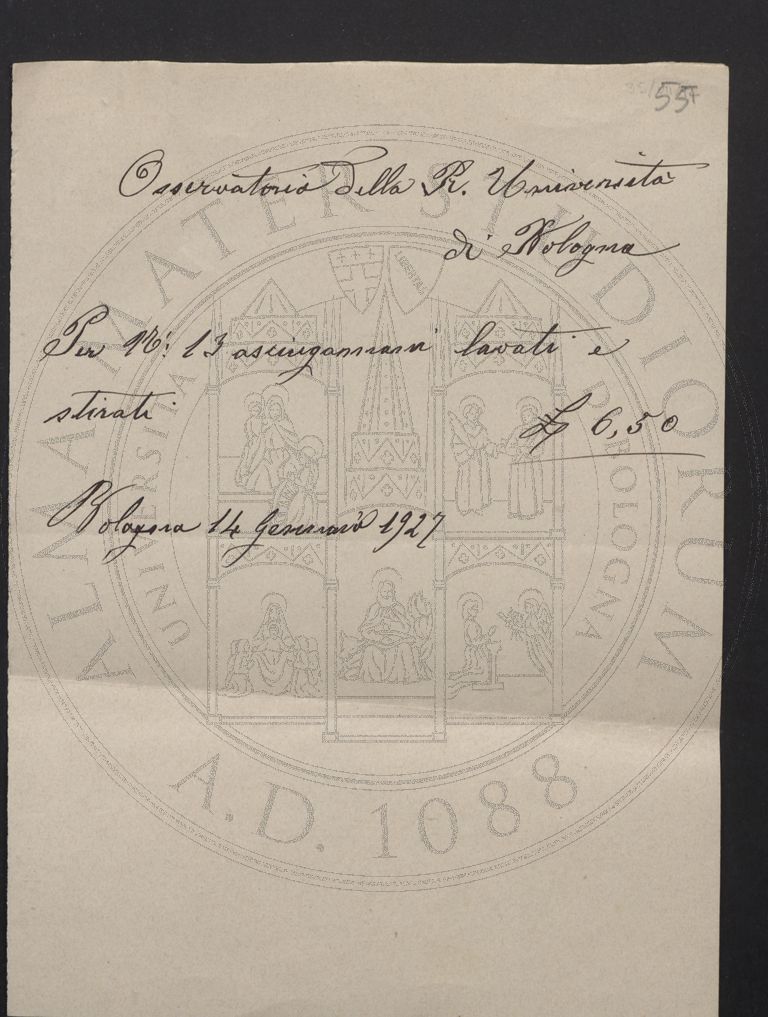 55
Osservatorio della R. Università
di Bologna
Per N°: 13 asciugamani lavati e
stirati
£ 6,50
Bologna 14 Gennaio 1927
ALMA MATER STUDIORUM
UNIVERSITÀ DI BOLOGNA
LIBERTAS
A.D. 1088